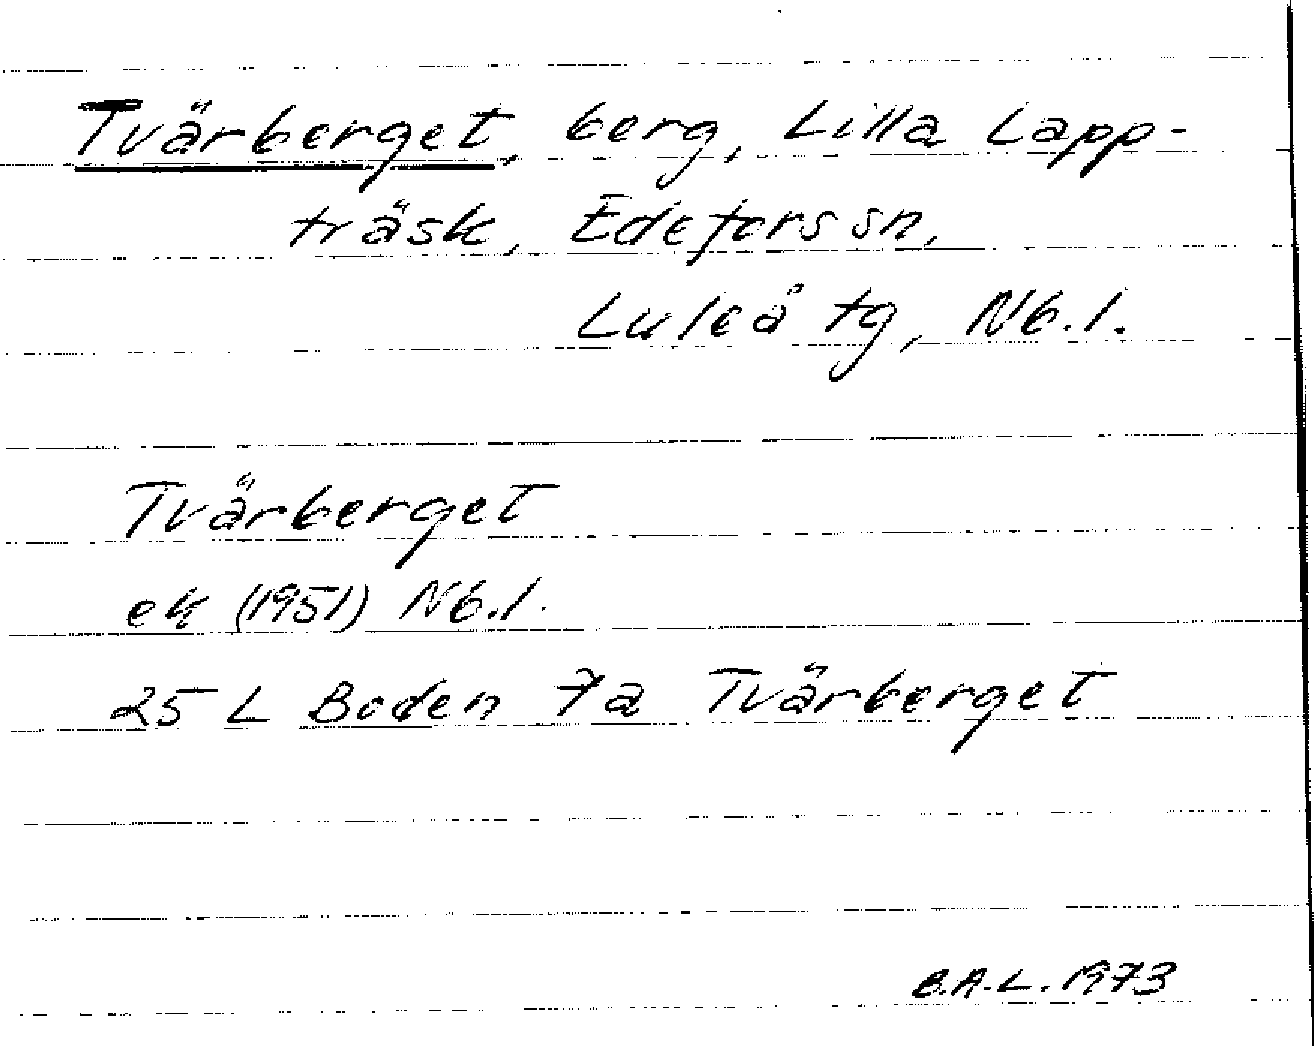 Tvärberget, berg, Lilla Lapp-
träsk, Edefors sn,
Luleå tg, Nb.l.
Tvärberget
ek (1951) Nb.l.
25 L Boden 7a Tvärberget
B.A.L. 1973